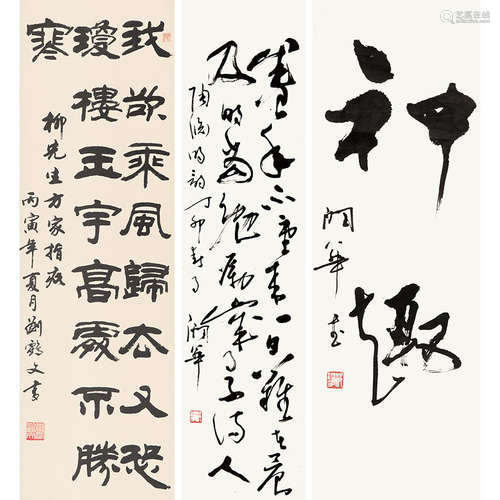 神趣
盛年不重来一日難再晨
及時當勉勵歲月不待人
陶淵明詩丁卯春月
我欲乘風歸去又恐
瓊樓玉宇高處不勝
寒
柳先生方家指疵
丙寅年夏月劉文書
艺狐在线
artfoxlive.com